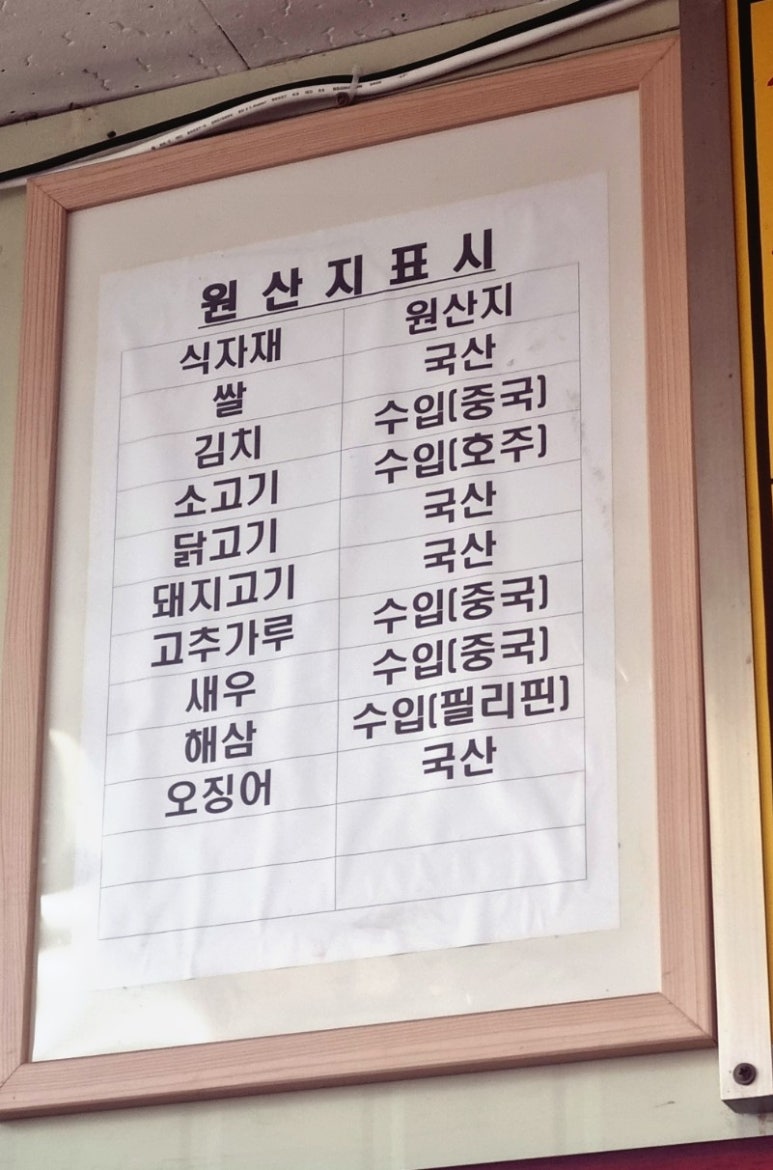 원산지표시
식자재 원산지
쌀 국산
김치 수입(중국)
소고기 수입(호주)
닭고기 국산
돼지고기 국산
고추가루 수입(중국)
새우 수입(중국)
해삼 수입(필리핀)
오징어 국산